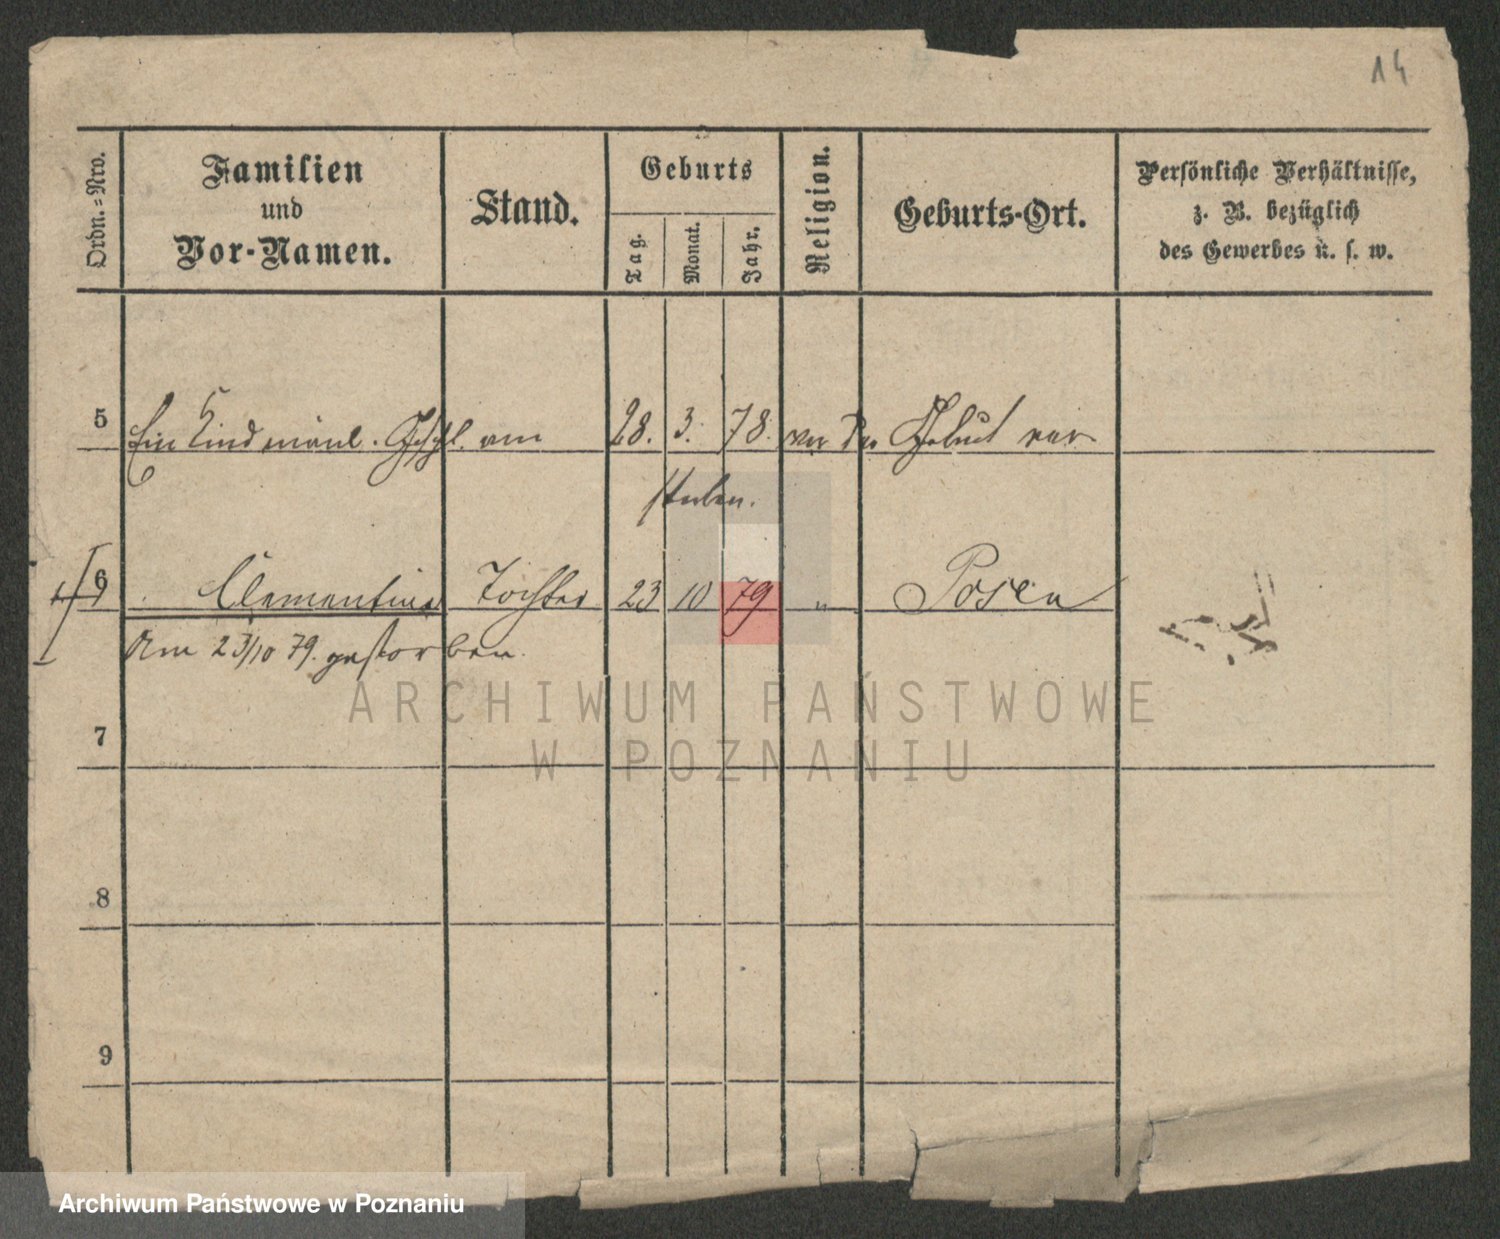 14
Ordn.=Nro.
Familien
und
Vor-Namen.
Stand.
Geburts
Tag.
Monat.
Jahr.
Religion.
Geburts-Ort.
Persönliche Verhältnisse,
z. B. bezüglich
des Gewerbes u. s. w.
5 Ein Kind männl. Geschl. am 28. 3. 78. vor der Geburt ver
storben.
6 Clementine Tochter 23 10 79 " Posen
Am 23/10 79. gestorben.
7
8
9
ARCHIWUM PAŃSTWOWE
W POZNANIU
Archiwum Państwowe w Poznaniu